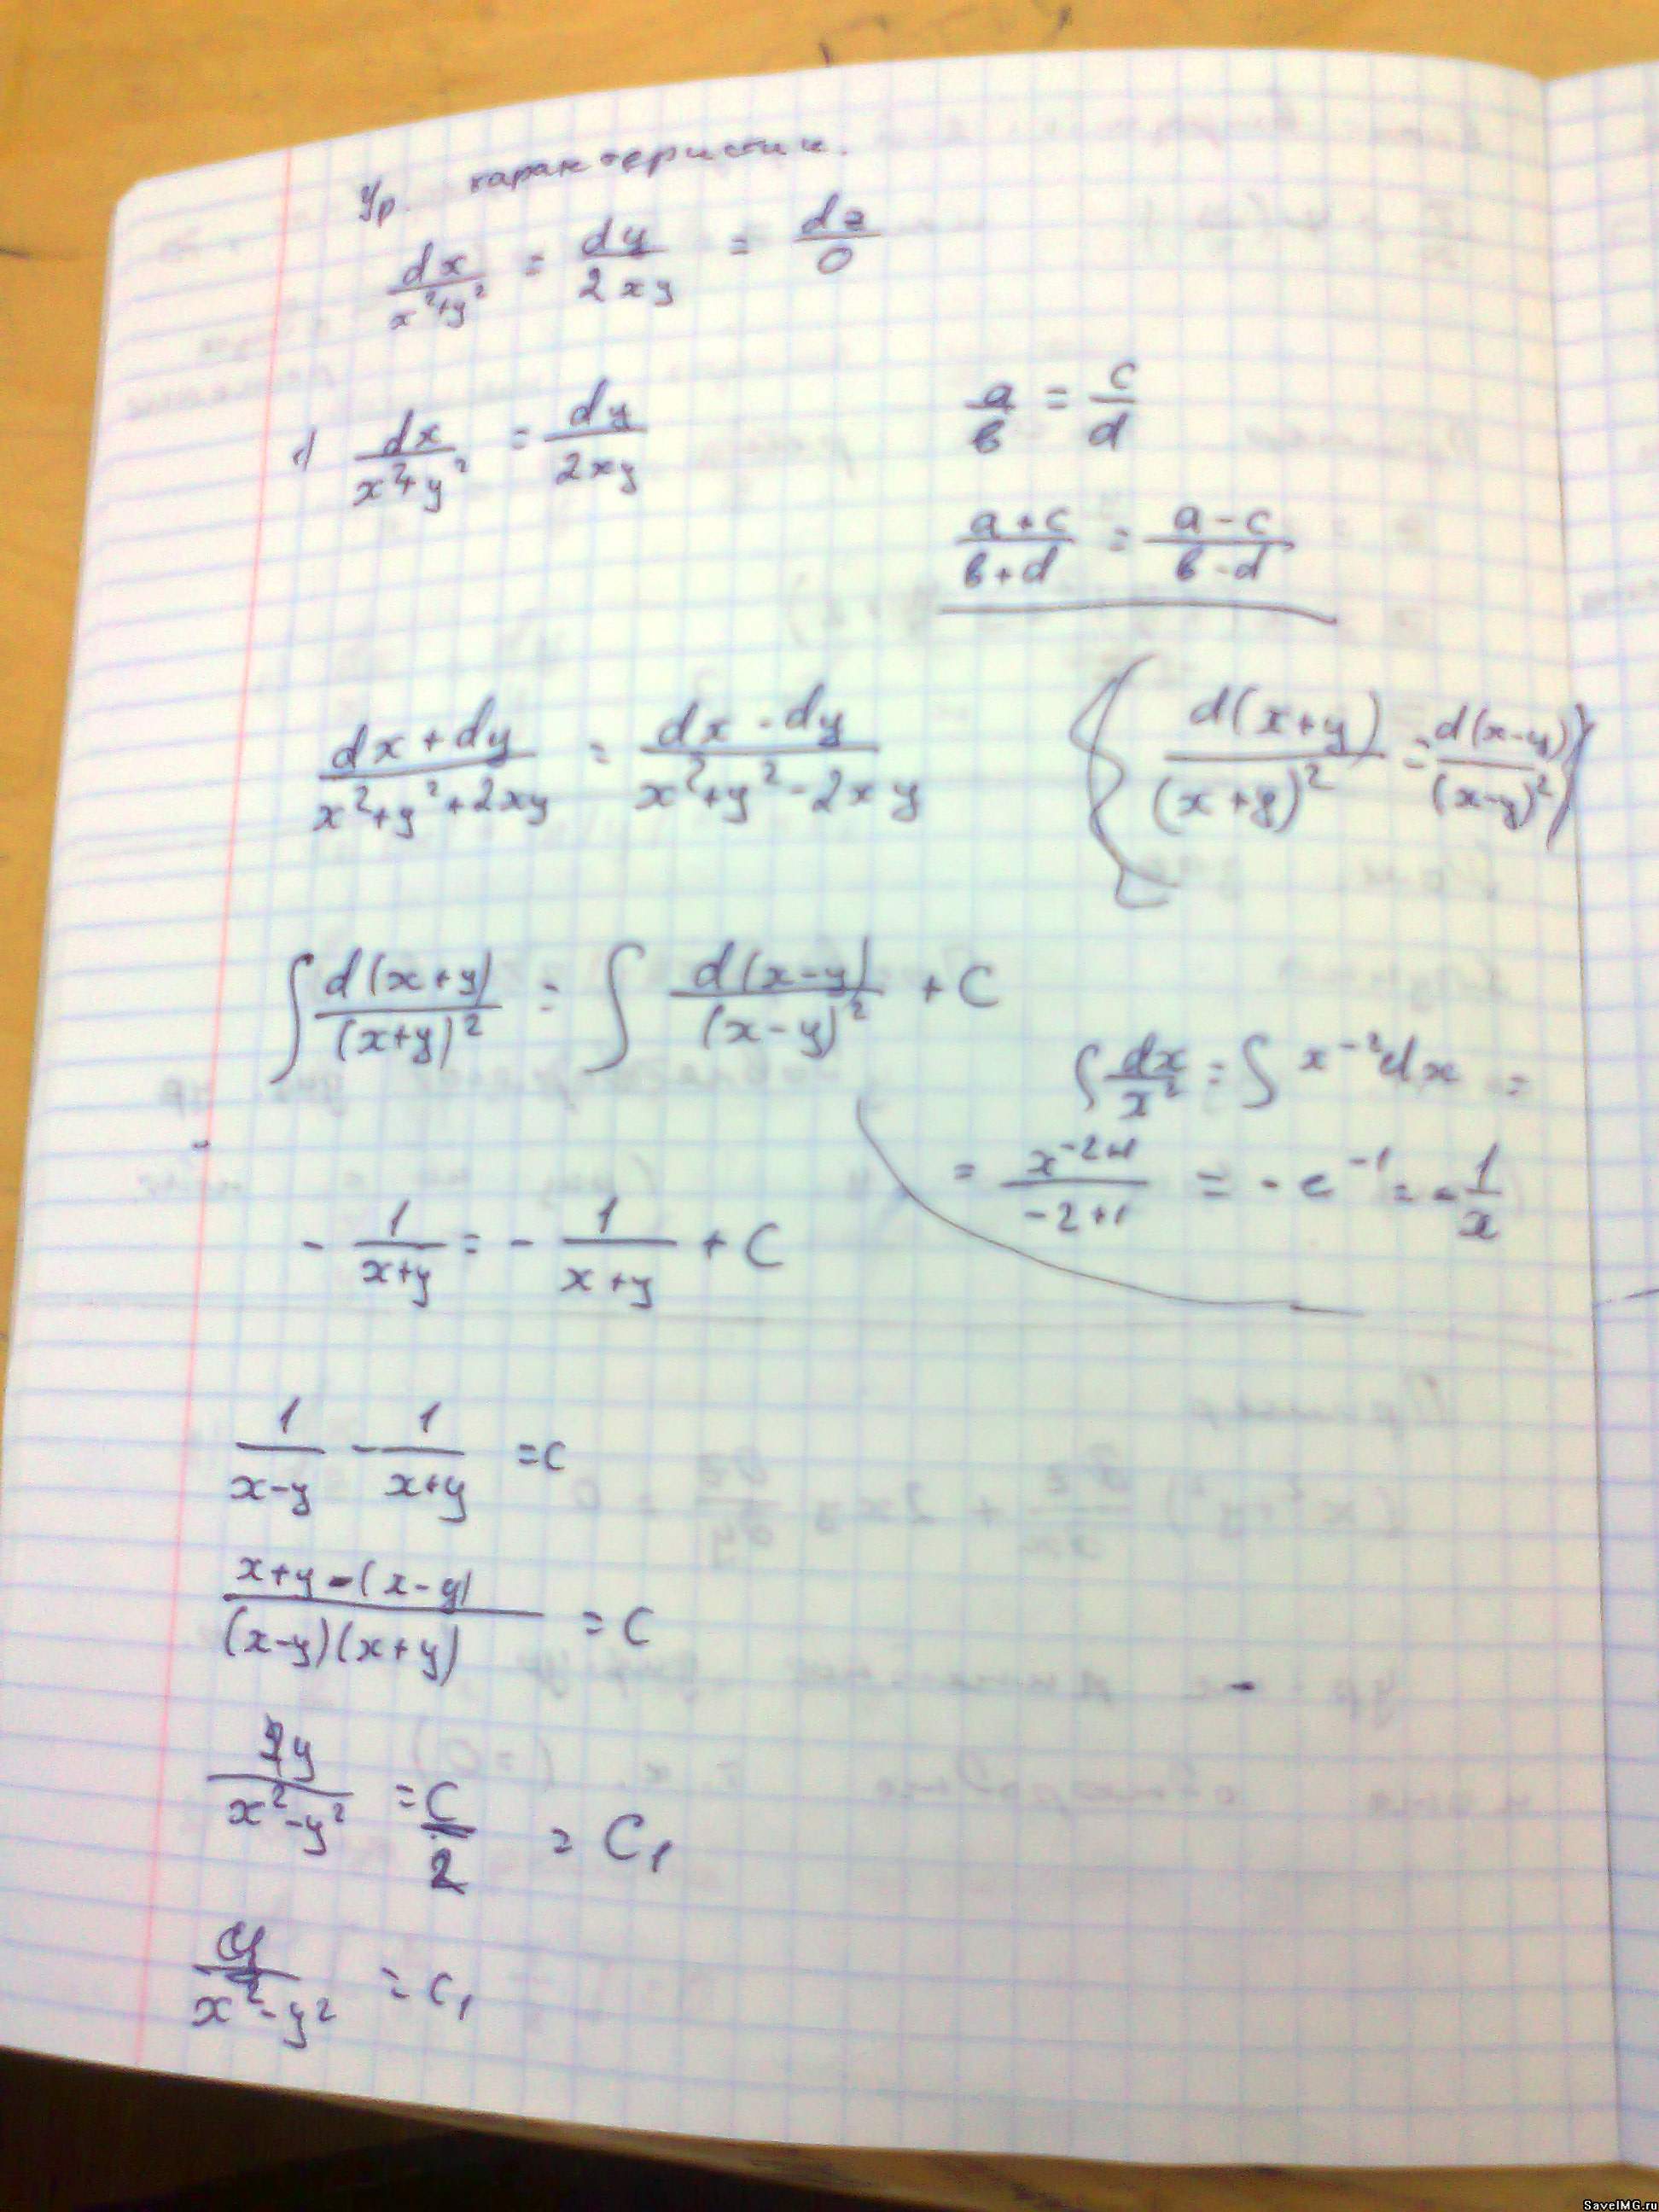 Ур. характеристик.
dx/(x²+y²) = dy/(2xy) = dz/0
1) dx/(x²+y²) = dy/(2xy)
a/b = c/d
(a+c)/(b+d) = (a-c)/(b-d)
(dx+dy)/(x²+y²+2xy) = (dx-dy)/(x²+y²-2xy)
{d(x+y)/(x+y)² = d(x-y)/(x-y)²}
∫ d(x+y)/(x+y)² = ∫ d(x-y)/(x-y)² + C
∫ dx/x² = ∫ x⁻² dx =
= x⁻²⁺¹/(-2+1) = -e⁻¹ = -1/x
-1/(x+y) = -1/(x+y) + C
1/(x-y) - 1/(x+y) = C
(x+y-(x-y))/((x-y)(x+y)) = C
2y/(x²-y²) = C/2 = C₁
y/(x²-y²) = C₁
SaveIMG.ru